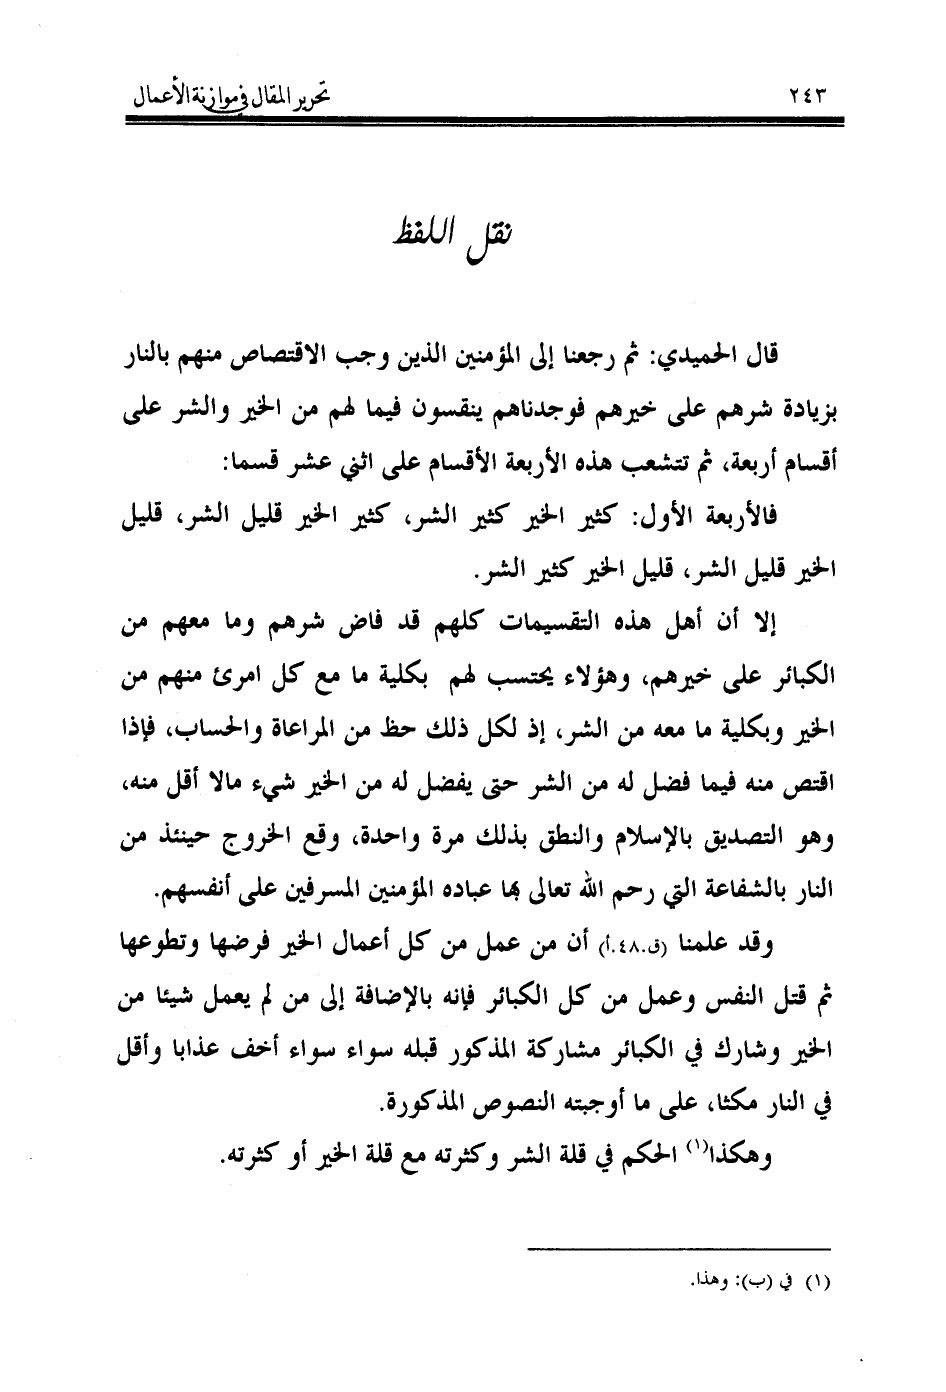 ٢٤٣ تحرير المقال في موازنة الأعمال
نقل اللفظ
قال الحميدي: ثم رجعنا إلى المؤمنين الذين وجب الاقتصاص منهم بالنار
بزيادة شرهم على خيرهم فوجدناهم ينقسون فيما لهم من الخير والشر على
أقسام أربعة، ثم تتشعب هذه الأربعة الأقسام على اثني عشر قسما:
فالأربعة الأول: كثير الخير كثير الشر، كثير الخير قليل الشر، قليل
الخير قليل الشر، قليل الخير كثير الشر.
إلا أن أهل هذه التقسيمات كلهم قد فاض شرهم وما معهم من
الكبائر على خيرهم، وهؤلاء يحتسب لهم بكلية ما مع كل امرئ منهم من
الخير وبكلية ما معه من الشر، إذ لكل ذلك حظ من المراعاة والحساب، فإذا
اقتص منه فيما فضل له من الشر حتى يفضل له من الخير شيء مالا أقل منه،
وهو التصديق بالإسلام والنطق بذلك مرة واحدة، وقع الخروج حينئذ من
النار بالشفاعة التي رحم الله تعالى بها عباده المؤمنين المسرفين على أنفسهم.
وقد علمنا (ق.٤٨.أ) أن من عمل من كل أعمال الخير فرضها وتطوعها
ثم قتل النفس وعمل من كل الكبائر فإنه بالإضافة إلى من لم يعمل شيئا من
الخير وشارك في الكبائر مشاركة المذكور قبله سواء سواء أخف عذابا وأقل
في النار مكثا، على ما أوجبته النصوص المذكورة.
وهكذا(١) الحكم في قلة الشر وكثرته مع قلة الخير أو كثرته.
(١) في (ب): وهذا.